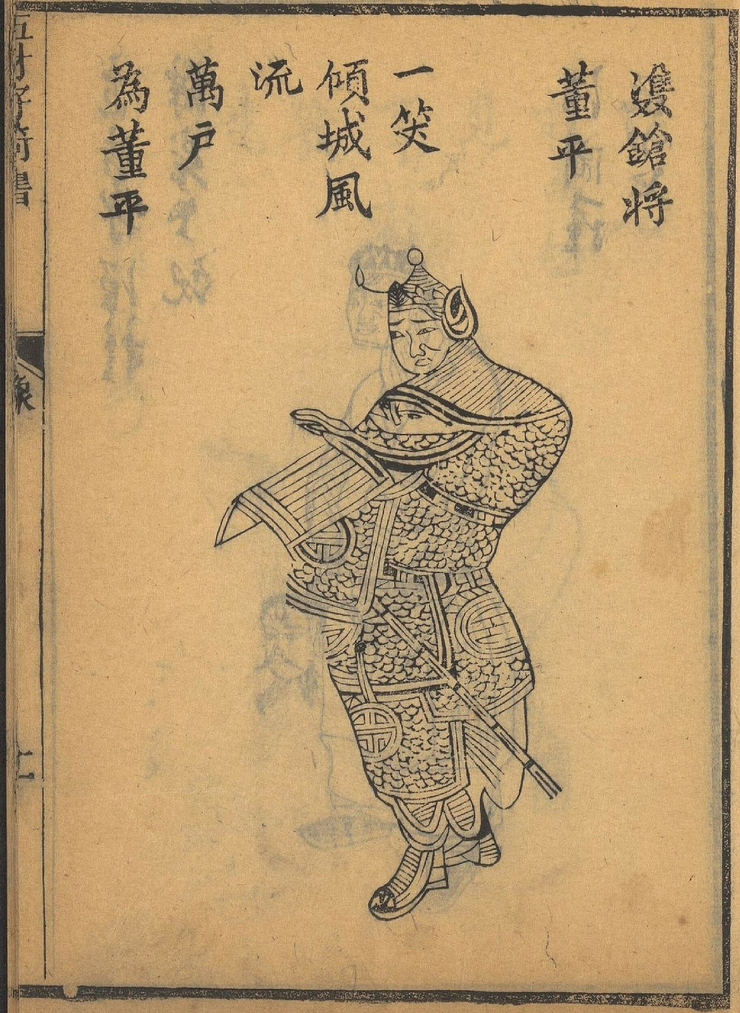 雙鎗将
董平
一笑
傾城風
流
萬户
為董平